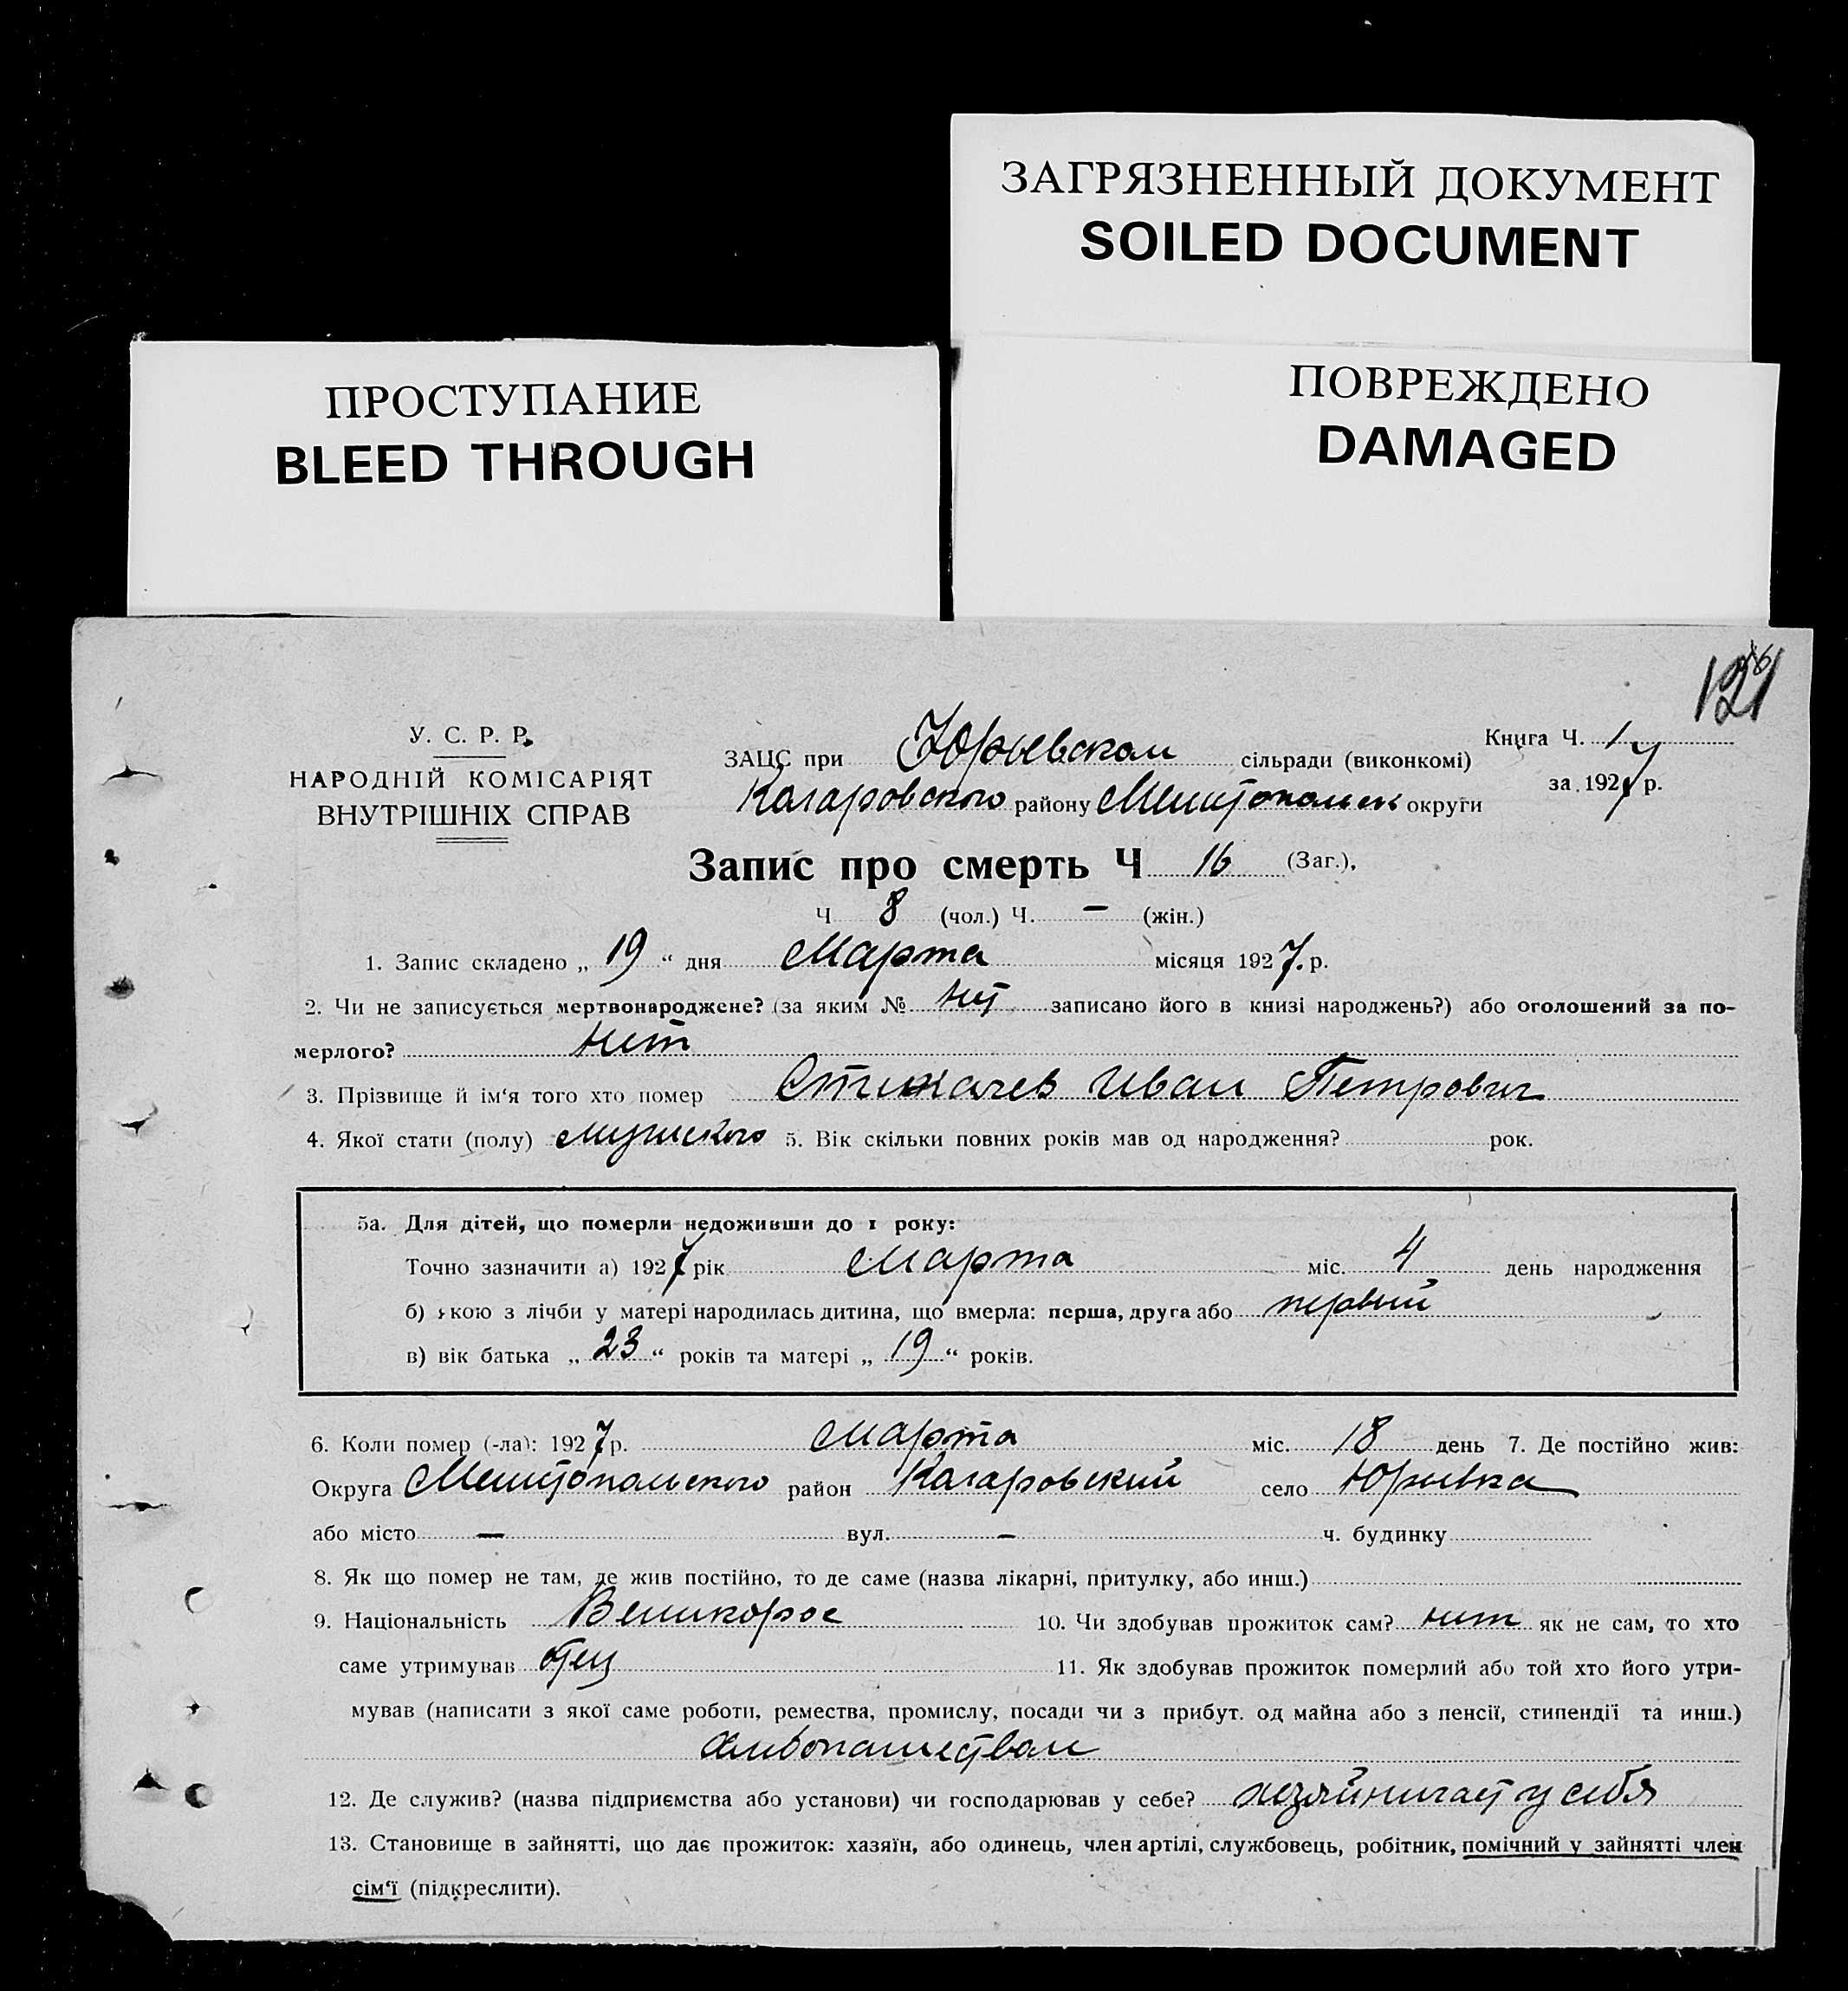 ЗАГРЯЗНЕННЫЙ ДОКУМЕНТ
SOILED DOCUMENT
ПРОСТУПАНИЕ
BLEED THROUGH
ПОВРЕЖДЕНО
DAMAGED
121
У. С. Р. Р.
НАРОДНІЙ КОМІСАРІЯТ
ВНУТРІШНІХ СПРАВ
ЗАЦС при Юрьевском сільради (виконкомі)
району округи
Книга Ч. 1
за 1927 р.
Запис про смерть Ч 16 (Заг.),
Ч 8 (чол.) Ч. — (жін.)
1. Запис складено „ 19 “ дня Марта місяця 1927. р.
2. Чи не записується мертвонароджене? (за яким № нет записано його в книзі народжень?) або оголошений за по-
мерлого? нет
3. Прізвище й ім‘я того хто помер Стижачев Иван Петрович
4. Якої стати (полу) мужского 5. Вік скільки повних років мав од народження? рок.
5а. Для дітей, що померли недоживши до 1 року:
Точно зазначити а) 1927 рік марта міс. 4 день народження
б) якою з лічби у матері народилась дитина, що вмерла: перша, друга або первый
в) вік батька „ 23 “ років та матері „ 19 “ років.
6. Коли помер (-ла): 1927 р. марта міс. 18 день 7. Де постійно жив:
Округа район село Юрьевка
або місто — вул. — ч. будинку
8. Як що помер не там, де жив постійно, то де саме (назва лікарні, притулку, або инш.)
9. Національність Великорос 10. Чи здобував прожиток сам? нет як не сам, то хто
саме утримував отец 11. Як здобував прожиток померлий або той хто його утри-
мував (написати з якої саме роботи, ремества, промислу, посади чи з прибут. од майна або з пенсії, стипендії та инш.)
Хлебопашеством
12. Де служив? (назва підприємства або установи) чи господарював у себе? хозяйничает у себя
13. Становище в зайнятті, що дає прожиток: хазяїн, або одинець, член артілі, службовець, робітник, помічний у зайнятті член
сім‘ї (підкреслити).